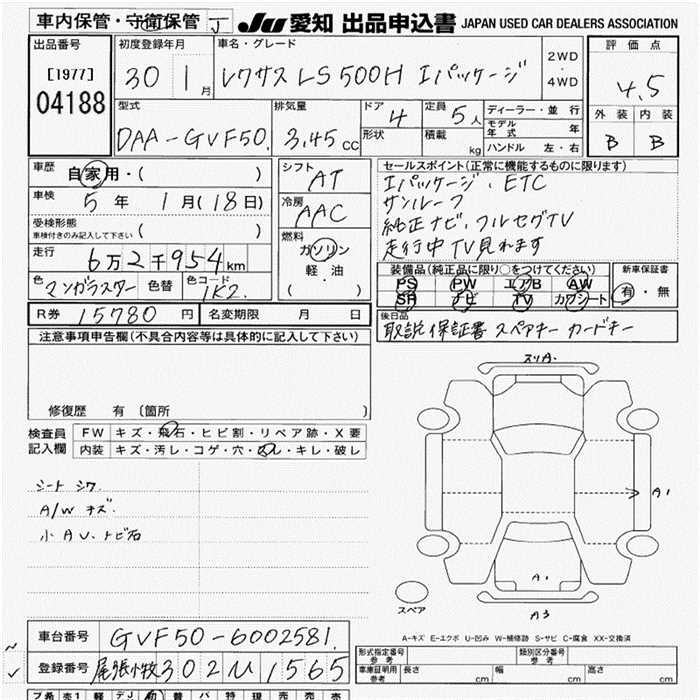 車内保管・守衛保管 J JU 愛知 出品申込書 JAPAN USED CAR DEALERS ASSOCIATION
出品番号 初度登録年月 車名・グレード 評価点
[1977] 30 1月 レクサス LS500H Iパッケージ 2WD・4WD 4.5
04188
型式 排気量 ドア 定員 ディーラー・並行 外装 内装
DAA-GVF50. 3.45cc 4 5人 モデル年式 年 B B
形状 積載 kg ハンドル 左・右
車歴 自家用・( ) シフト AT セールスポイント(正常に機能するものに限ります)
車検 5年 1月(18日) 冷房 AAC Iパッケージ、ETC
サンルーフ
受検形態 車検付きのみ記入して下さい ( ) 燃料 ガソリン 純正ナビ、フルセグTV
走行 6万2千954km 軽・油 ( ・ ) 走行中TV見れます
色 マンガラスター 色替 色コード 1K2. 装備品(純正品に限り○をつけてください) 新車保証書
PS PW エアB AW 有・無
SR ナビ TV カワシート
R券 15780円 名変期限 月 日 後日品 取説 保証書 スペアキー カードキー
注意事項申告欄(不具合内容等は具体的に記入して下さい)
スリA.
修復歴 有 〔箇所 〕
検査員記入欄 FW キズ・飛石・ヒビ割・リペア跡・X要
内装 キズ・汚レ・コゲ・穴・スレ・キレ・破レ
シート シワ
A/W キズ A1
小AU、トビ石
A1
スペア A3
A-キズ E-エクボ U-凹み W-補修跡 S-サビ C-腐食 XX-交換済
車台番号 GVF50-6002581.
登録番号 尾張小牧302 1565
形式指定番号 参考 類別区分番号 参考
車庫証明用 参考 長さ cm 幅 cm 高さ cm